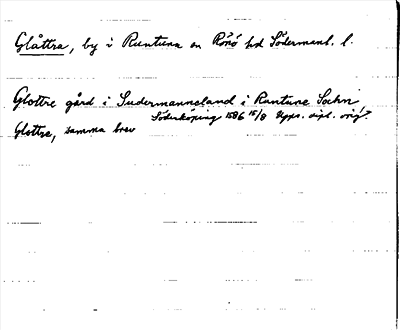 Glåttra, by i Runtuna sn Rönö hd Södermanl. l.
Glottre gård i Sudermanneland i Rantuna Sochn
Söderköping 1586 15/8 Upps. dipl. orig.
Glottre, samma brev